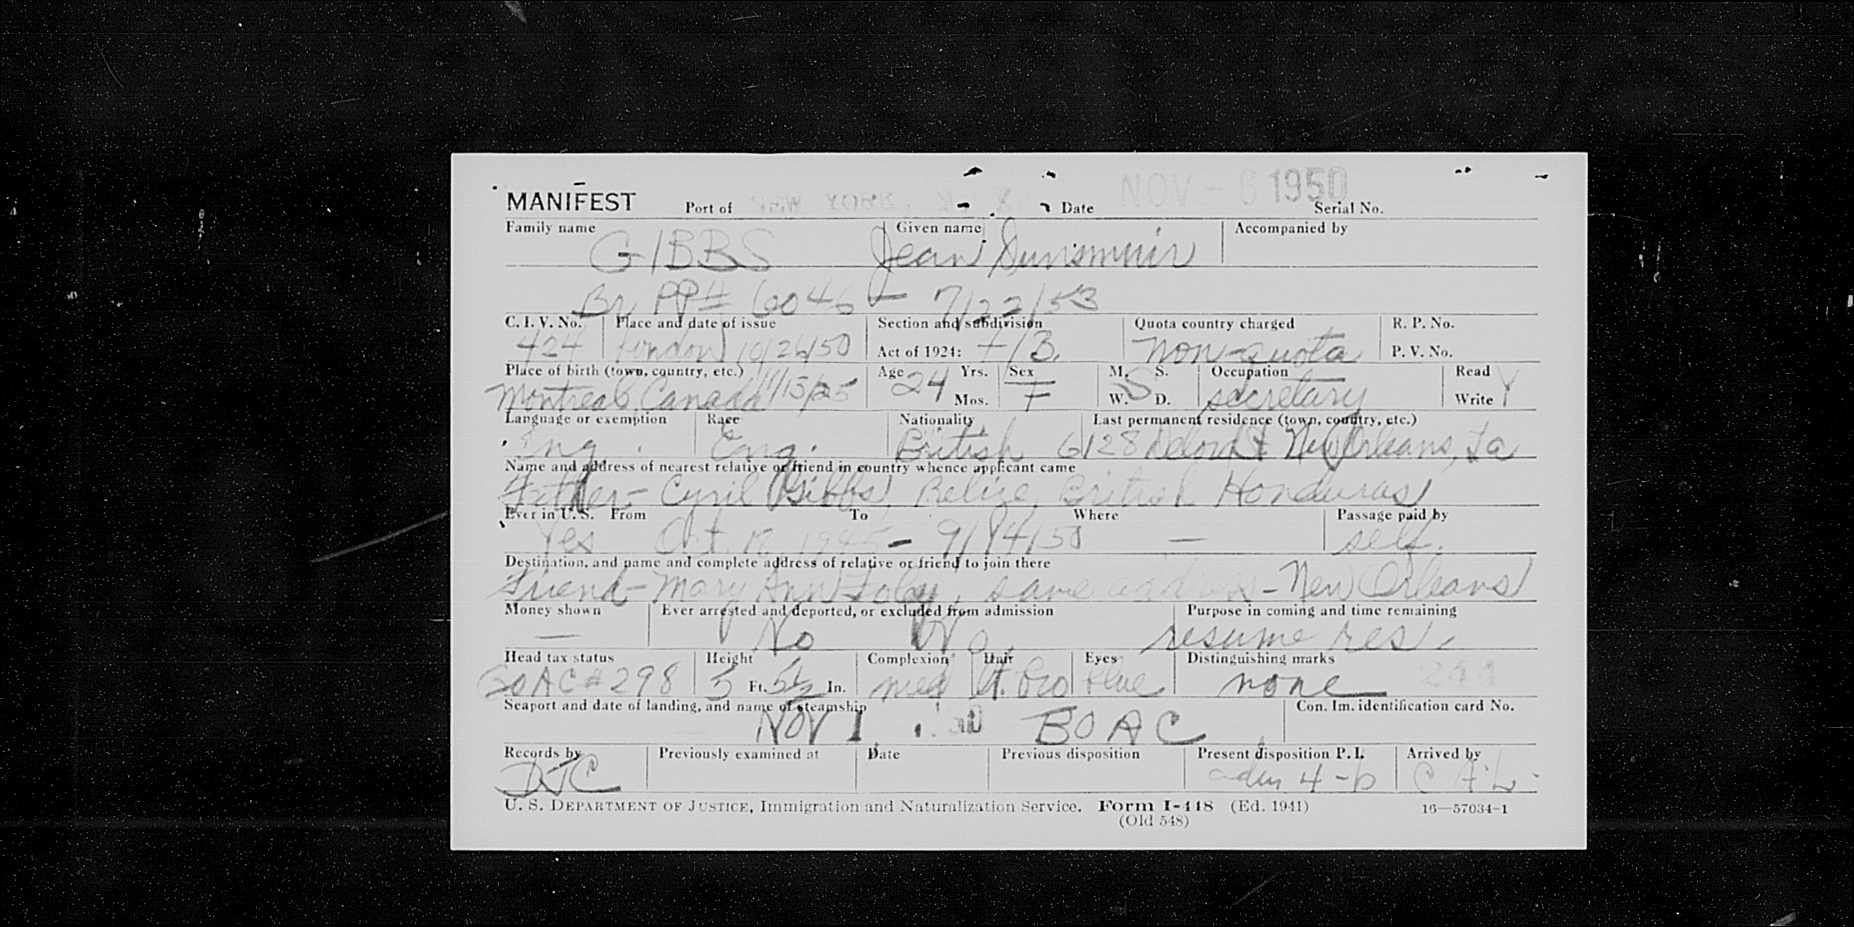 MANIFEST Port of NEW YORK, N. Y. Date NOV - 6 1950 Serial No.
Family name GIBBS Given name Jean Dunsmuir Accompanied by
Br PP# 6046 - 7/22/53
C. I. V. No. Place and date of issue Section and subdivision Quota country charged R. P. No.
424 London 10/26/50 Act of 1924: 4B. non-quota P. V. No.
Place of birth (town, country, etc.) Age Yrs. Sex M. S. Occupation Read
Montreal, Canada /15/25 24 Mos. F W. D. S secretary Write Y
Language or exemption Race Nationality Last permanent residence (town, country, etc.)
Eng. Eng. British 6128 St New Orleans, La
Name and address of nearest relative or friend in country whence applicant came
Father - Cyril Gibbs, Belize, British Honduras
Ever in U. S. From To Where Passage paid by
Yes Oct. 1945 - 9/14/50 — self.
Destination, and name and complete address of relative or friend to join there
Friend - Mary Ann Foley, same address - New Orleans
Money shown Ever arrested and deported, or excluded from admission Purpose in coming and time remaining
— No No resume res.
Head tax status Height Complexion Hair Eyes Distinguishing marks
BOAC # 298 5 Ft. 5½ In. med lt. bro blue none 244
Seaport and date of landing, and name of steamship Con. Im. identification card No.
NOV 1 BOAC
Records by Previously examined at Date Previous disposition Present disposition P. I. Arrived by
DJC adm 4-b
U. S. DEPARTMENT OF JUSTICE, Immigration and Naturalization Service. Form I-448 (Ed. 1941) 16—57034-1
(Old 548)